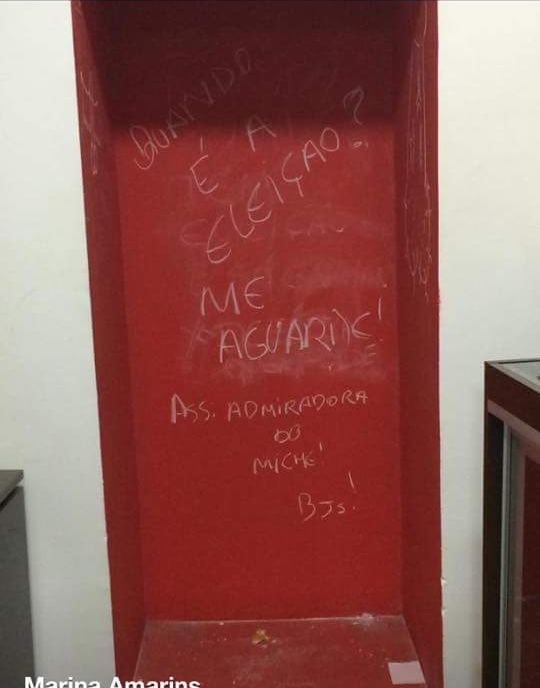 QUANDO
É A
ELEIÇÃO?
ME
AGUARDE!
ASS: ADMIRADORA
DO
MICHE!
BJS!
Marina Amarins